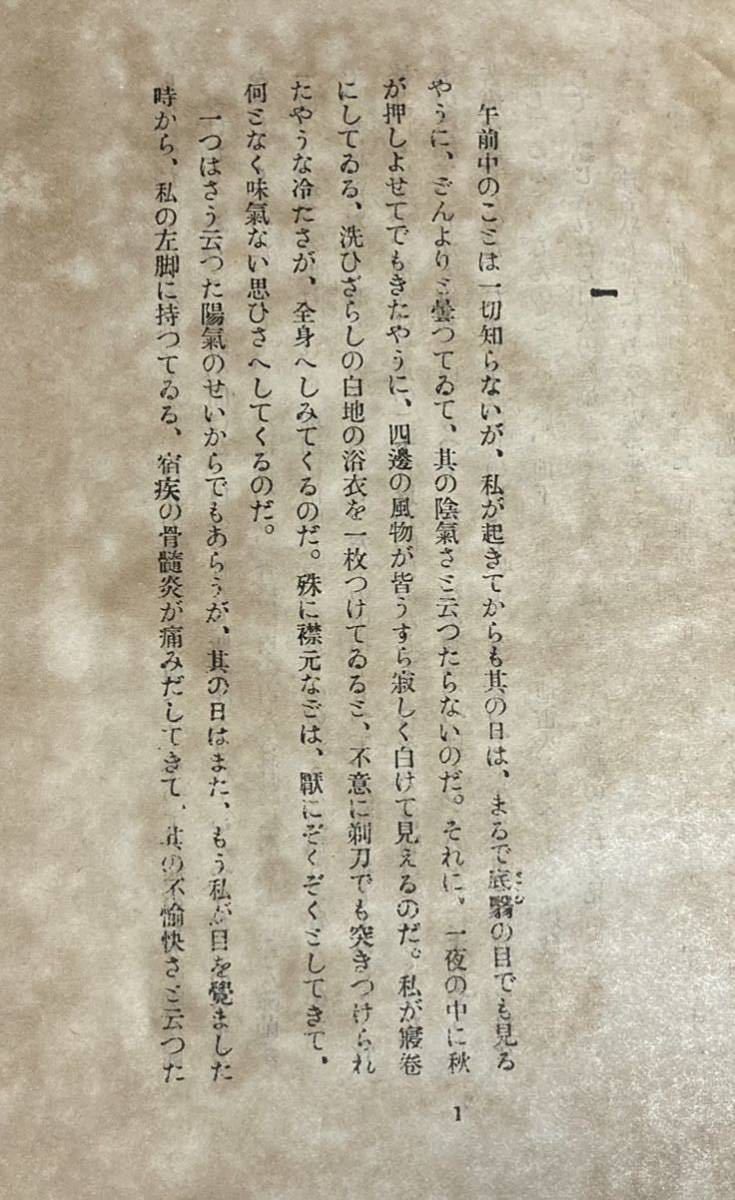 一
午前中のことは一切知らないが、私が起きてからも其の日は、まるで底翳の目でも見る
やうに、どんよりと曇つてゐて、其の陰氣さと云つたらないのだ。それに、一夜の中に秋
が押しよせてでもきたやうに、四邊の風物が皆うすら寂しく白けて見えるのだ。私が寢卷
にしてゐる、洗ひざらしの白地の浴衣を一枚つけてゐると、不意に剃刀でも突きつけられ
たやうな冷たさが、全身へしみてくるのだ。殊に襟元などは、厭にぞくぞくとしてきて、
何となく味氣ない思ひさへしてくるのだ。
一つはさう云つた陽氣のせいからでもあらうが、其の日はまた、もう私が目を覺ました
時から、私の左脚に持つてゐる、宿疾の骨髓炎が痛みだしてきて、其の不愉快さと云つた
1